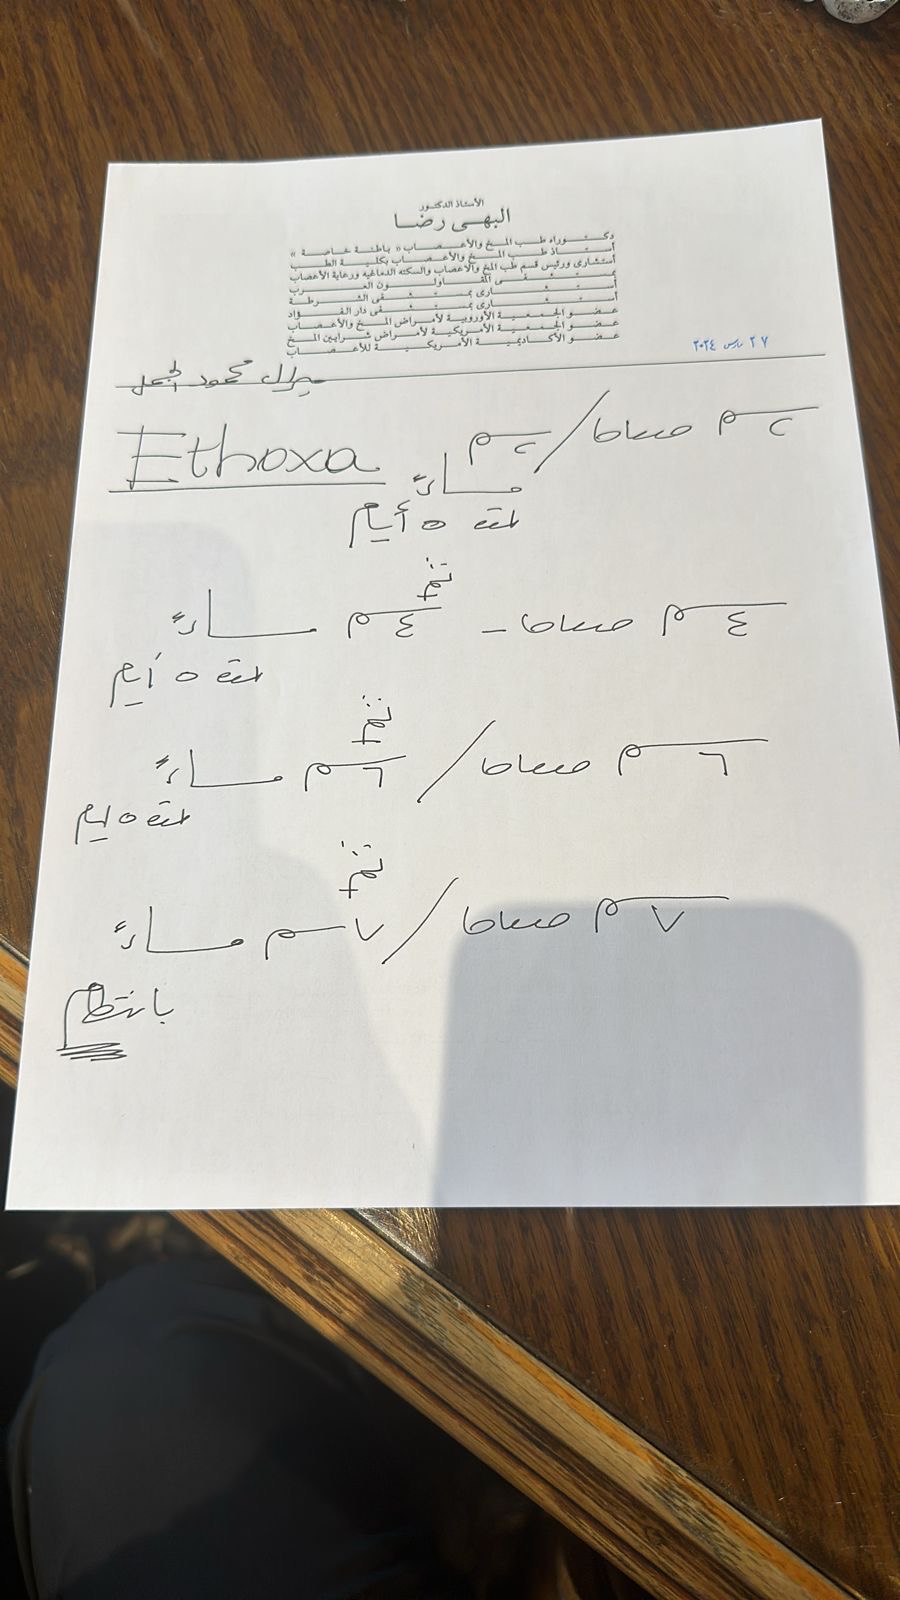 الأستاذ الدكتور
البهى رضا
دكتوراه طب المخ والأعصاب « باطنة خاصة »
أستاذ طب المخ والأعصاب بكلية الطب
أستشارى ورئيس قسم طب المخ والأعصاب والسكته الدماغيه ورعاية الأعصاب
بمستشفى المقاولون العرب
أستشارى بمستشفى الشرطة
أستشارى بمستشفى دار الفؤاد
عضو الجمعية الأوروبية لأمراض المخ والأعصاب
عضو الجمعية الأمريكية لأمراض شرايين المخ
عضو الأكاديمية الأمريكية للأعصاب
٢٧ مارس ٢٠٢٤
محمود الجمل
Ethoxa
٢ سم صباحا / ٢ سم
مساءً
لمدة ٥ أيام
ثم
٤ سم صباحا - ٤ سم مساءً
لمدة ٥ أيام
ثم
٦ سم صباحا / ٦ سم مساءً
لمدة ٥ أيام
ثم
٧ سم صباحا / ٧ سم مساءً
بانتظام